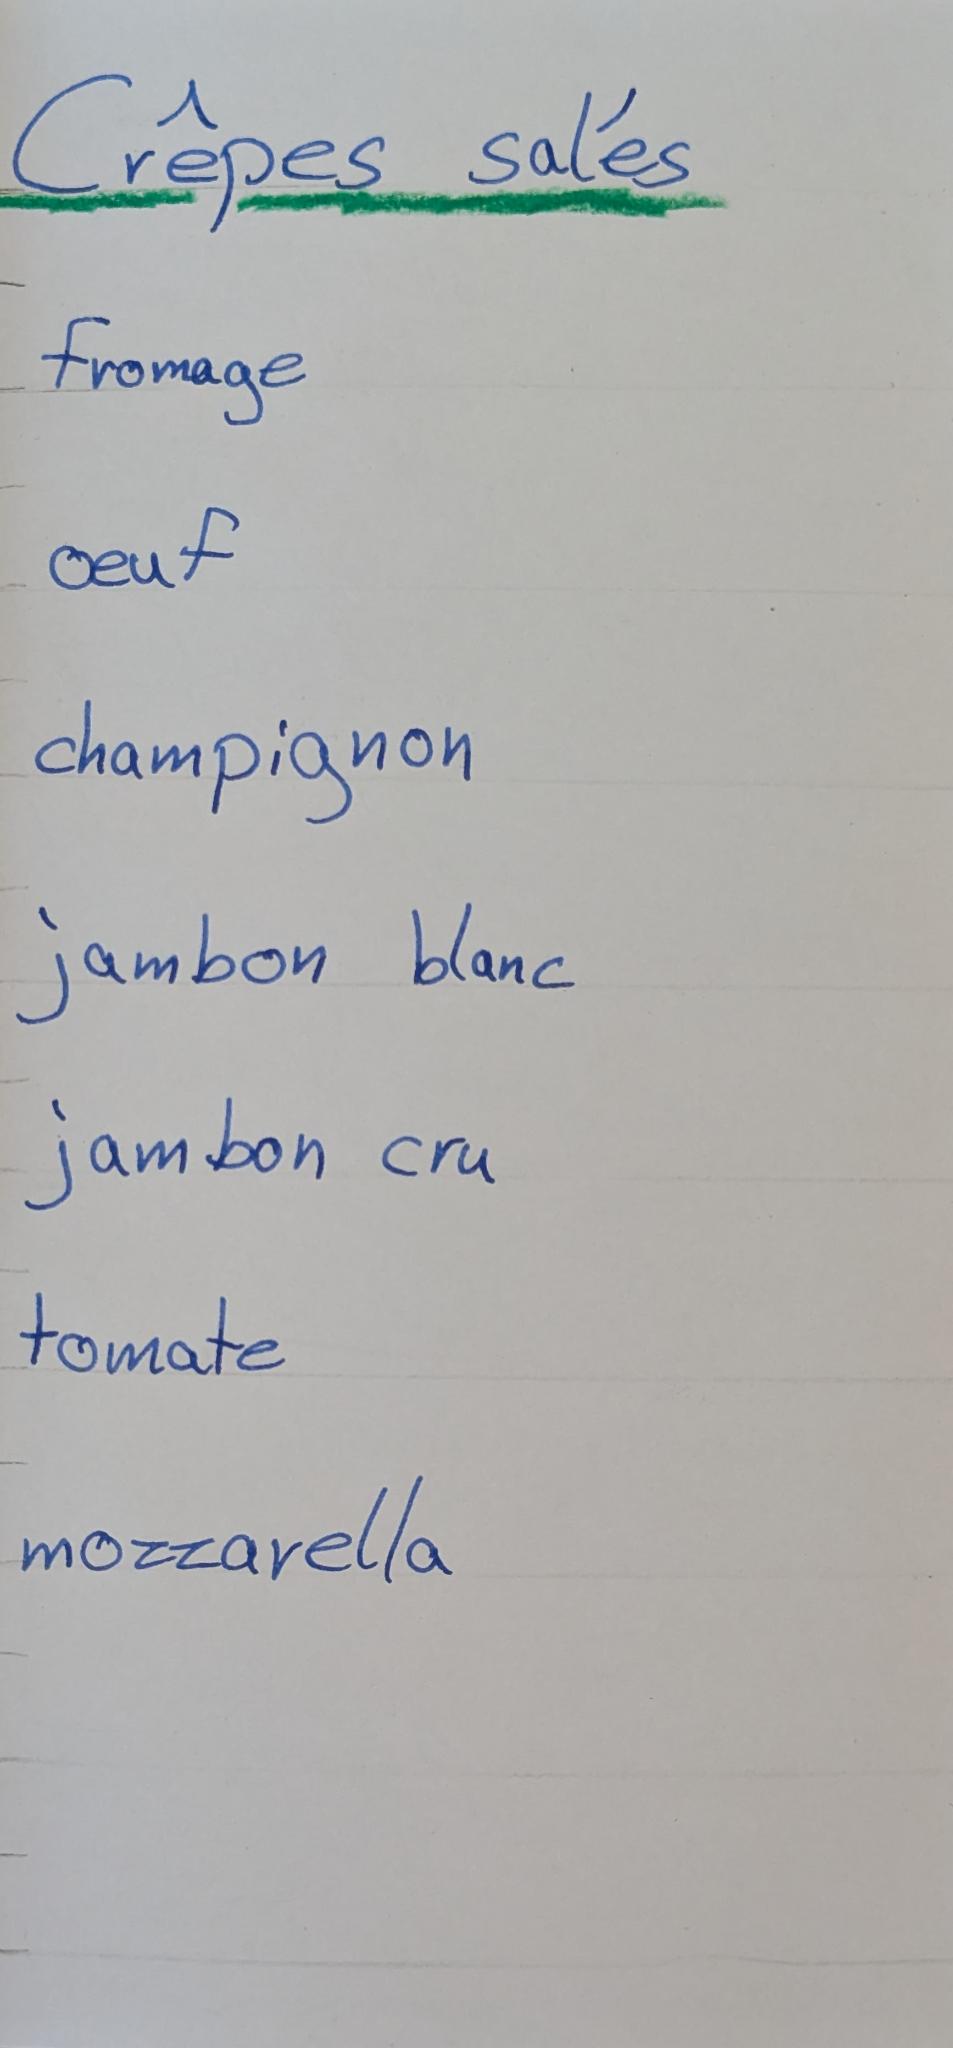 Crêpes salés
fromage
oeuf
champignon
jambon blanc
jambon cru
tomate
mozzarella